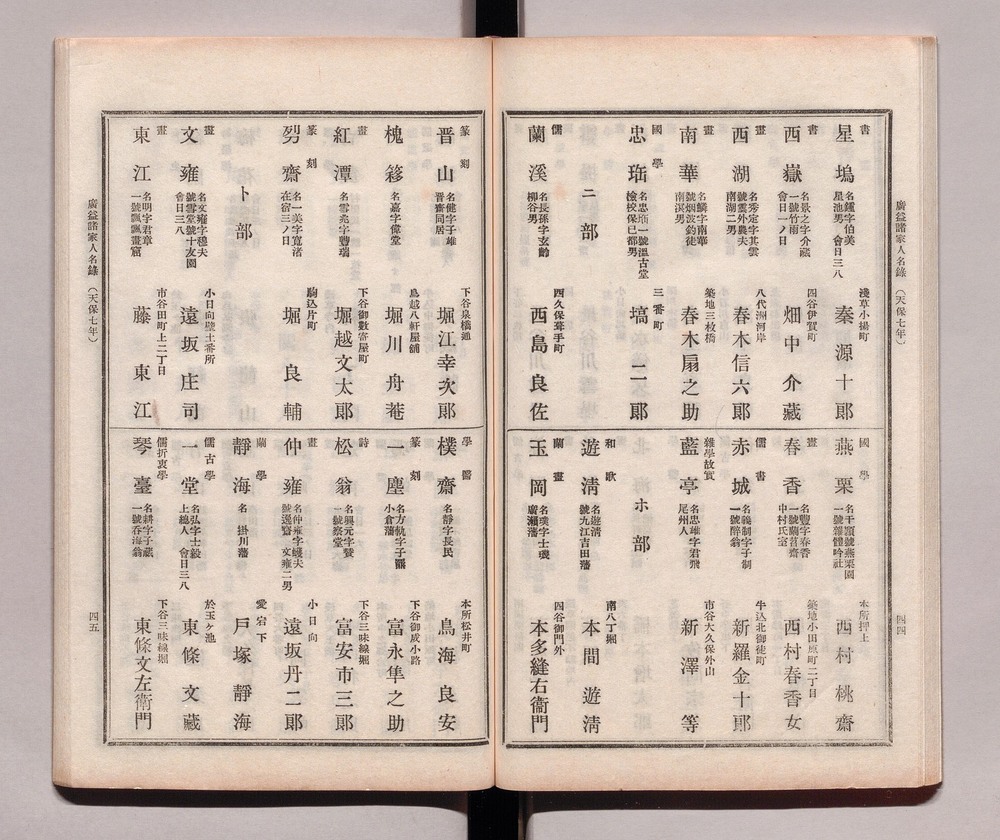 廣益諸家人名錄(天保七年)
四四
書
星塢
名鐘字伯美
星池男 會日三八
淺草小揚町
秦源十郞
書
西嶽
名景之字介藏
一號竹雨
會日一ノ日
四谷伊賀町
畑中介藏
畫
西湖
名秀定字其雲
號雲外農夫
南湖二男
八代洲河岸
春木信六郞
畫
南華
名鱗字南華
號烟波釣徒
南溟男
築地三枚橋
春木扇之助
國學
忠瑤
名忠瑤一號溫古堂
檢校保已都男
三番町
塙二郞
ニ部
儒
蘭溪
名長孫字玄齡
柳谷男
西久保葺手町
西島良佐
國學
燕栗
名千穎號燕栗園
一號雜體吟社
本所押上
西村桃齋
畫
春香
名豐字春香
一號蘭苕齋
中村氏室
築地小田原町二丁目
西村春香女
儒書
赤城
名義制字子制
一號醉翁
牛込北御徒町
新羅金十郞
雜學故實
藍亭
名忠雄字君飛
尾州人
市谷大久保外山
新澤等
ホ部
和歌
遊淸
名遊淸
號九江吉田藩
南八丁堀
本間遊淸
蘭畫
玉岡
名璞字士璣
廣瀨藩
四谷御門外
本多縫右衞門
篆刻
晋山
名健字子雄
晋齋同居
下谷泉橋通
堀江幸次郞
槐簃
名嘉字偉堂
鳥越八軒屋舖
堀川舟菴
畫
紅潭
名雪兆字豐瑞
下谷御數寄屋町
堀越文太郞
篆刻
列齋
名一美字寬渚
在宿三ノ日
駒込片町
堀良輔
ト部
畫
文雍
名文雍字穆夫
號雪堂號十友園
會日三八
小日向壁土番所
遠坂庄司
畫
東江
名明字君章
一號飄飄畫窟
市谷田町上二丁目
藤東江
學醫
樸齋
名靜字長民
本所松井町
鳥海良安
篆刻
一塵
名方軌字子羆
小倉藩
下谷御成小路
富永隼之助
詩
松翁
名興元字賛
一號察堂
下谷三味線堀
富安市三郞
畫
仲雍
名仲雍字巘夫
號邊齋 文雍二男
小日向
遠坂丹二郞
蘭學
靜海
名 掛川藩
愛宕下
戶塚靜海
儒古學
一堂
名弘字士毅
上總人 會日三八
於玉ケ池
東條文藏
儒折衷學
琴臺
名耕字子藏
一號呑海翁
下谷三味線堀
東條文左衞門
廣益諸家人名錄(天保七年)
四五